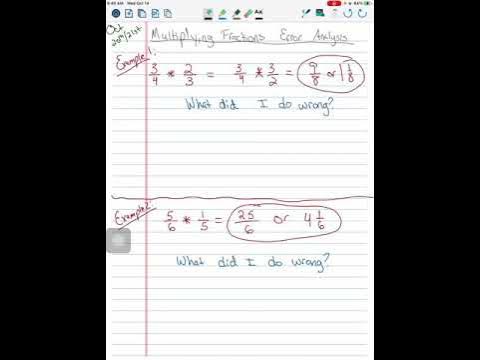 Oct
20th/21st
Multiplying Fractions Error Analysis
Example 1:
3/4 * 2/3 = 3/4 * 3/2 = 9/8 or 1 1/8
What did I do wrong?
Example 2:
5/6 * 1/5 = 25/6 or 4 1/6
What did I do wrong?